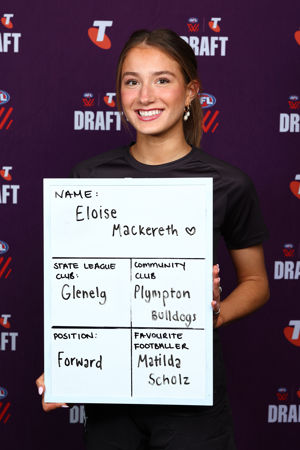 DRAFT
DRAFT
AFL
DRAFT
AFL
DRAFT
NAME:
Eloise
Mackereth ♡
STATE LEAGUE
CLUB:
Glenelg
COMMUNITY
CLUB
Plympton
Bulldogs
POSITION:
Forward
FAVOURITE
FOOTBALLER
Matilda
Scholz
DRAFT
DRAFT
DRAFT
DRAFT